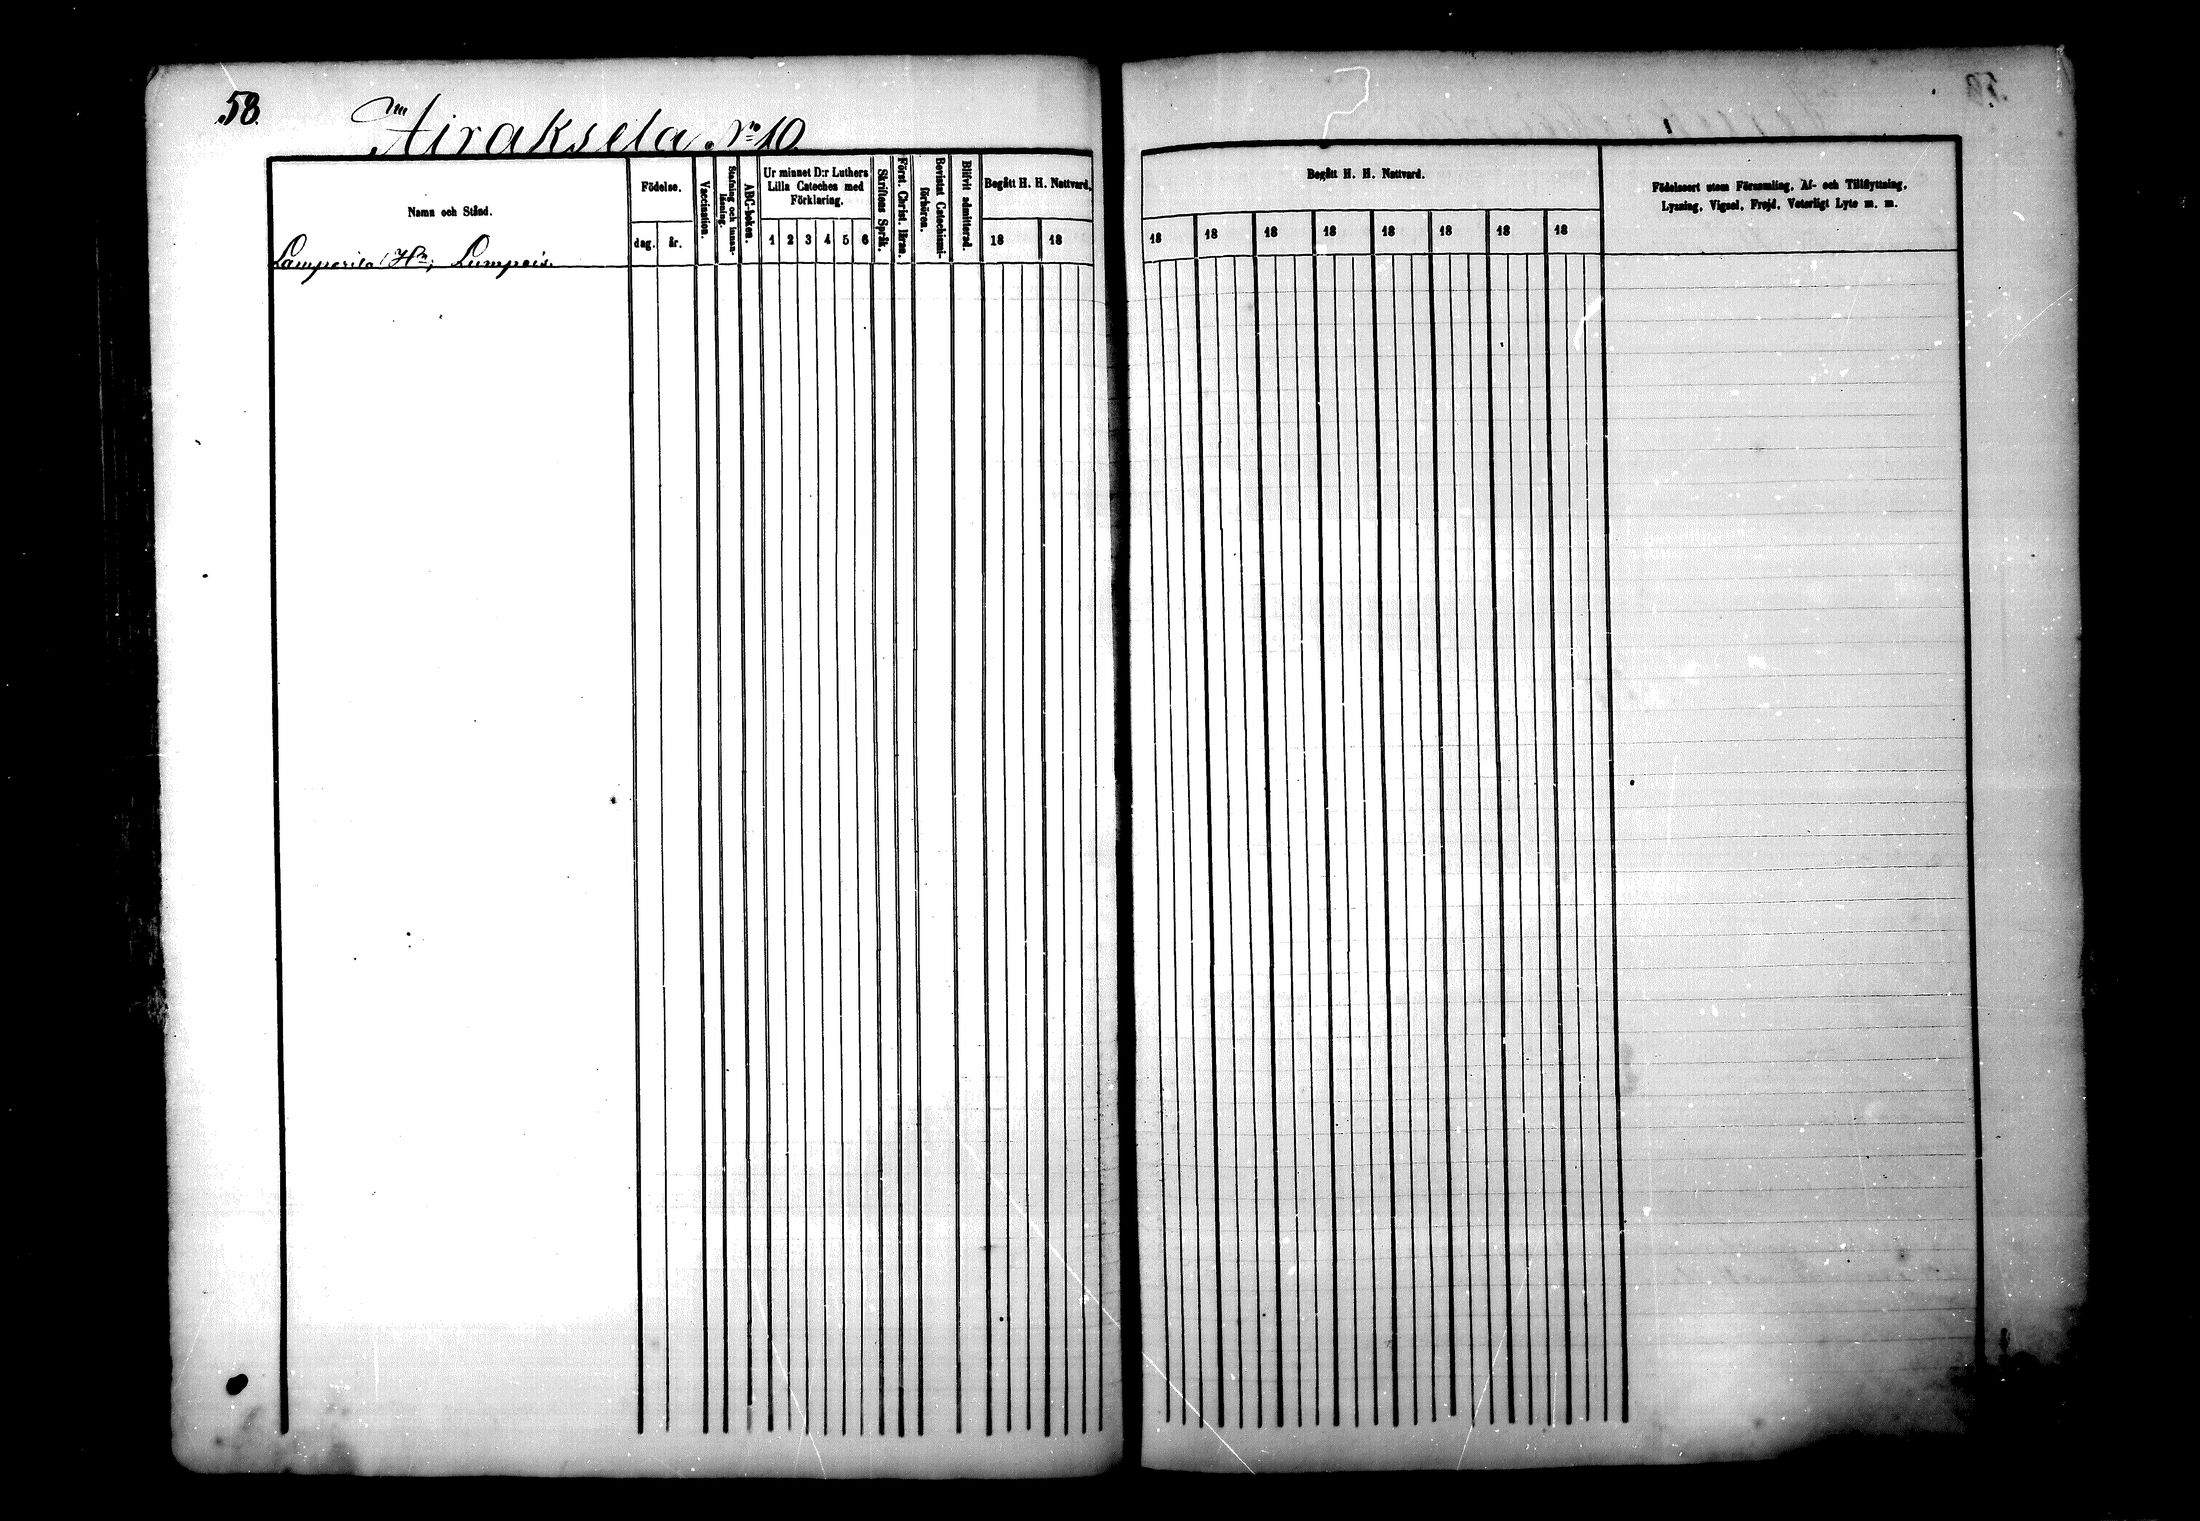 58.
Airaksela No 10
Namn och Stånd.
Födelse.
dag.
år.
Vaccination.
Stafning och innan-
läsning.
ABC-boken.
Ur minnet D:r Luthers
Lilla Cateches med
Förklaring.
1 2 3 4 5 6
Skriftens Språk.
Först. Christ. läran.
Bevistat Catechismi-
förhören.
Blifvit admitterad.
Begått H. H. Nattvard.
18 18
Lumpois.
Begått H. H. Nattvard.
18 18 18 18 18 18 18 18
Födelseort utom Församling, Af- och Tillflyttning,
Lysning, Vigsel, Frejd, Veterligt Lyte m. m.